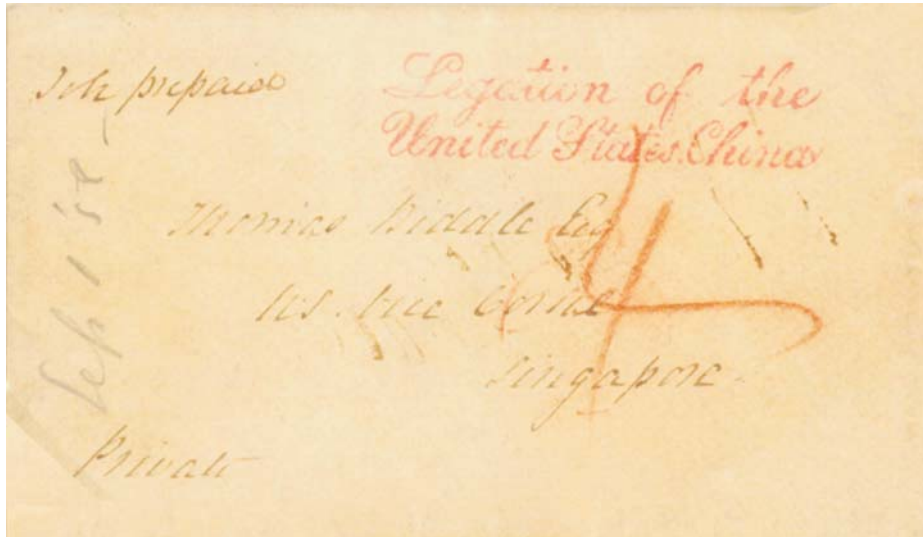 prepaid
Legation of the
United States. China
Thomas Biddle Esq
US. Vice Consul
Singapore
Private
Sep 1 58
4